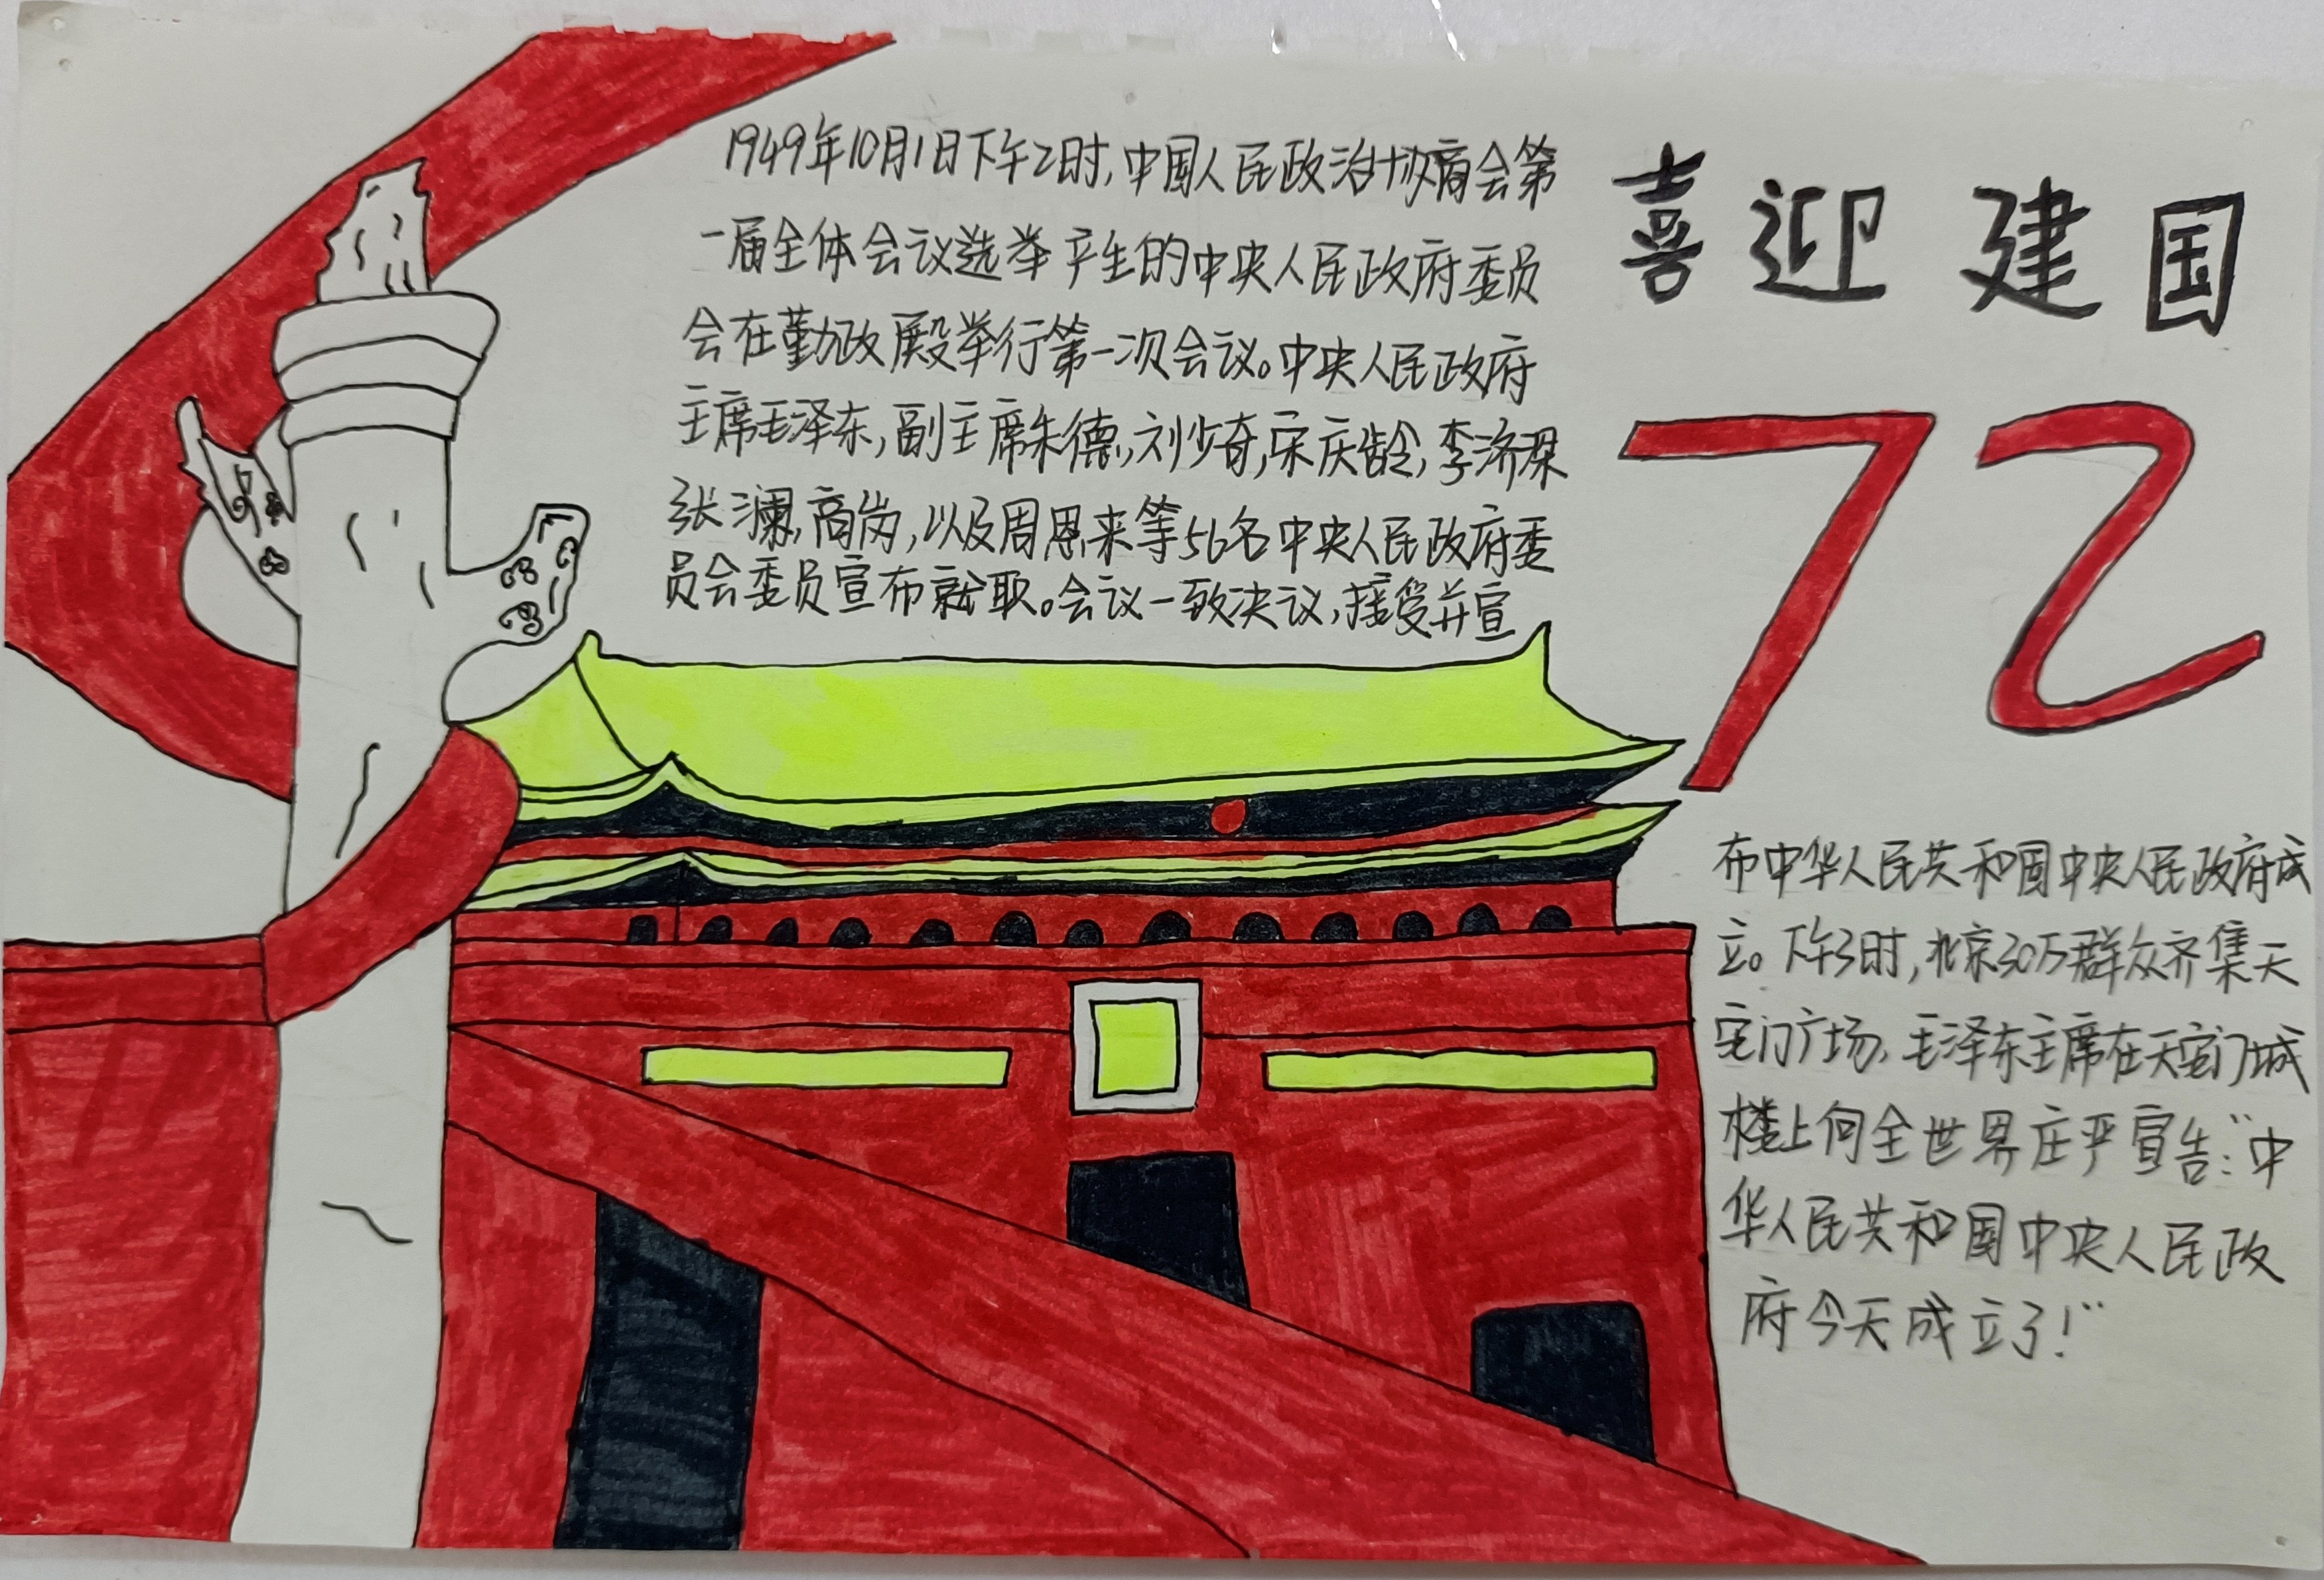 1949年10月1日下午2时,中国人民政治协商会第
一届全体会议选举产生的中央人民政府委员
会在勤政殿举行第一次会议。中央人民政府
主席毛泽东,副主席朱德,刘少奇,宋庆龄,李济琛
张澜,高岗,以及周恩来等56名中央人民政府委
员会委员宣布就职。会议一致决议,接受并宣
喜迎建国
72
布中华人民共和国中央人民政府成
立。下午3时,北京30万群众齐集天
安门广场,毛泽东主席在天安门城
楼上向全世界庄严宣告:“中
华人民共和国中央人民政
府今天成立了!”